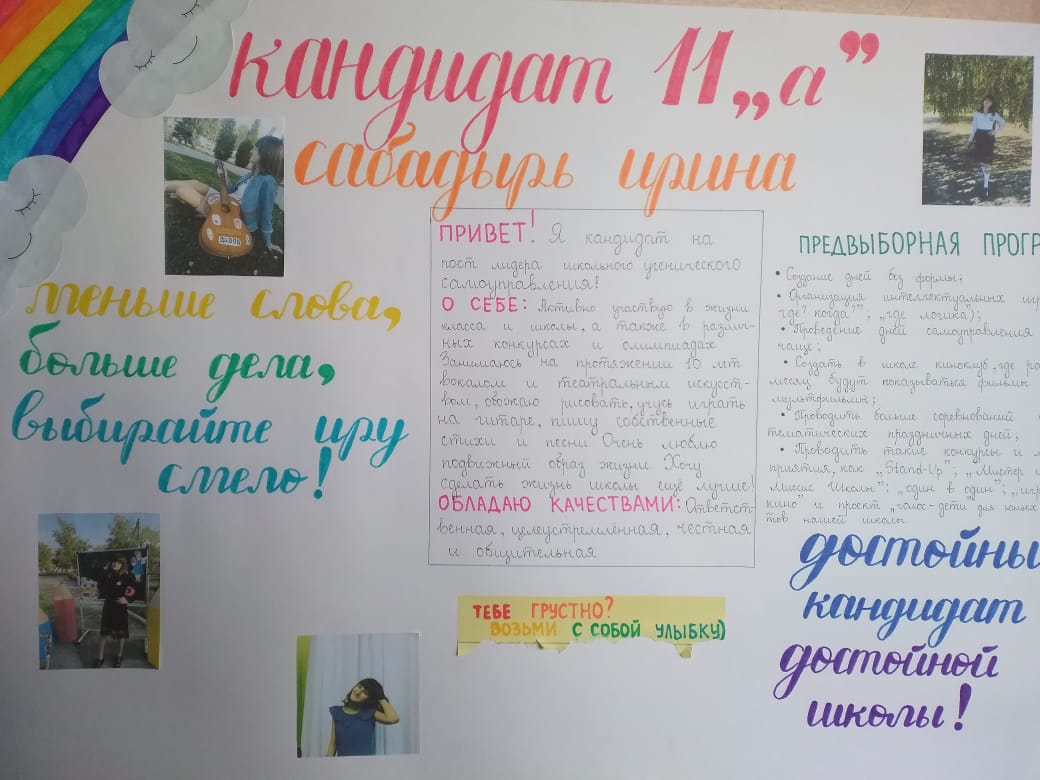 кандидат 11 „а”
сабадырь ирина
меньше слова,
больше дела,
выбирайте иру
смело!
ПРИВЕТ! Я кандидат на
пост лидера школьного ученического
самоуправления!
О СЕБЕ: Активно участвую в жизни
класса и школы, а также в различ-
ных конкурсах и олимпиадах
Занимаюсь на протяжении 10 лет
вокалом и театральным искусст-
вом, обожаю рисовать, учусь играть
на гитаре, пишу собственные
стихи и песни Очень люблю
подвижный образ жизни. Хочу
сделать жизнь школы ещё лучше!
ОБЛАДАЮ КАЧЕСТВАМИ: Ответст-
венная, целеустремлённая, честная
и общительная
ТЕБЕ ГРУСТНО?
ВОЗЬМИ С СОБОЙ УЛЫБКУ)
ПРЕДВЫБОРНАЯ ПРОГР
• Создание дней без формы;
• Организация интеллектуальных игр
где? когда?”; „где логика);
• Проведение дней самоуправления
чаще;
• Создать в школе киноклуб, где раз
месяц будут показываться фильмы
мультфильмы;
• Проводить больше соревнований
тематических праздничных дней;
• Проводить такие конкурсы и м
приятия, как „Stand-Up”; „Мистер и
Миссис Школы”; „один в один”; „игр
кино” и проект „голос-дети” для юных
тов нашей школы
достойны
кандидат
достойной
школы!